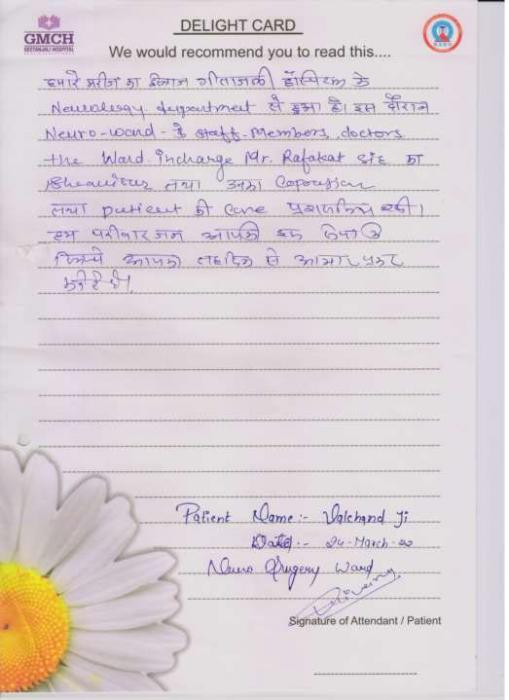 GMCH
GEETANJALI HOSPITAL
DELIGHT CARD
We would recommend you to read this....
हमारे मरीज का ईलाज गीतांजली हॉस्पिटल के
Neurology department से हुआ है। इस दौरान
Neuro-ward के staff-Members, doctors
the Ward Incharge Mr. Rafakat का
तथा उनका
तथा patient की care रही।
हम परीवार जन आपकी इस
आपका तहदिल से आभार प्रकट
करते है।
Patient Name :- Valchand Ji
Date :- 24-March-20
Neuro Srugery Ward
Signature of Attendant / Patient